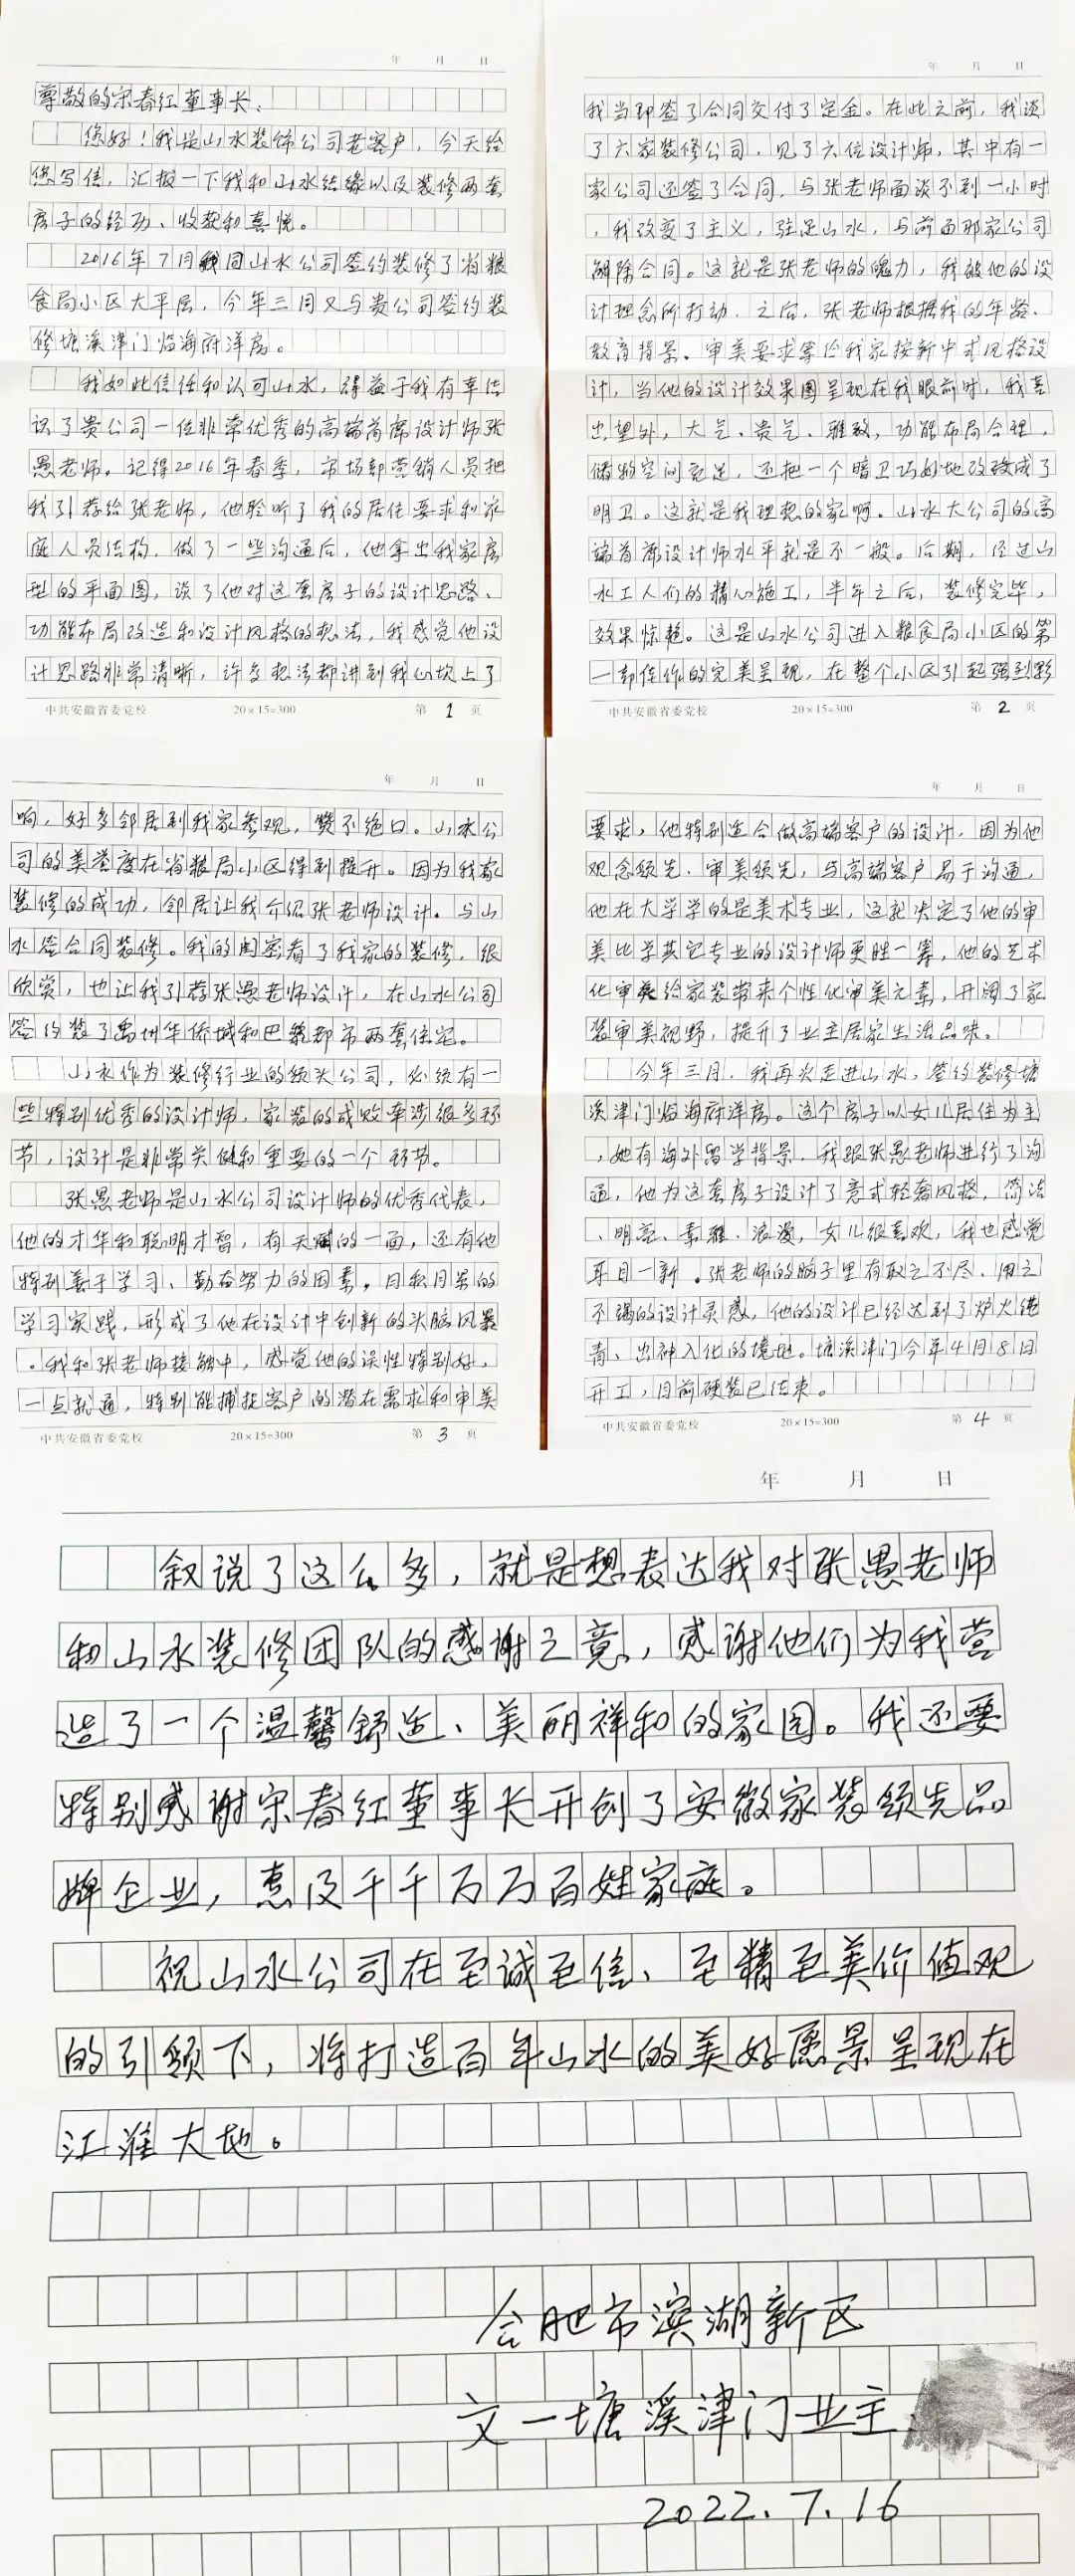 年 月 日
尊敬的宋春红董事长:
您好!我是山水装饰公司老客户,今天给
您写信,汇报一下我和山水结缘以及装修两套
房子的经历、收获和喜悦。
2016年7月我同山水公司签约装修了省粮
食局小区大平层,今年三月又与贵公司签约装
修塘溪津门临海府洋房。
我如此信任和认可山水,得益于我有幸结
识了贵公司一位非常优秀的高端首席设计师张
愚老师。记得2016年春季,市场部营销人员把
我引荐给张老师,他聆听了我的居住要求和家
庭人员结构,做了一些沟通后,他拿出我家房
型的平面图,谈了他对这套房子的设计思路、
功能布局改造和设计风格的想法,我感觉他设
计思路非常清晰,许多想法都讲到我心坎上了
中共安徽省委党校 20×15=300 第 1 页
年 月 日
我当即签了合同交付了定金。在此之前,我谈
了六家装修公司,见了六位设计师,其中有一
家公司还签了合同,与张老师面谈不到一小时
,我改变了主义,驻足山水,与前面那家公司
解除合同。这就是张老师的魄力,我被他的设
计理念所打动。之后,张老师根据我的年龄、
教育背景、审美要求等给我家按新中式风格设
计,当他的设计效果图呈现在我眼前时,我喜
出望外,大气、贵气、雅致,功能布局合理,
储物空间充足,还把一个暗卫巧妙地改改成了
明卫。这就是我理想的家啊。山水大公司的高
端首席设计师水平就是不一般。后期,经过山
水工人们的精心施工,半年之后,装修完毕,
效果惊艳。这是山水公司进入粮食局小区的第
一部佳作的完美呈现,在整个小区引起强烈影
中共安徽省委党校 20×15=300 第 2 页
年 月 日
响,好多邻居到我家参观,赞不绝口。山水公
司的美誉度在省粮局小区得到提升。因为我家
装修的成功,邻居让我介绍张老师设计。与山
水签合同装修。我的闺密看了我家的装修,很
欣赏,也让我引荐张愚老师设计,在山水公司
签约装了禹州华侨城和巴黎都市两套住宅。
山水作为装修行业的领头公司,必须有一
些特别优秀的设计师,家装的成败牵涉很多环
节,设计是非常关键和重要的一个环节。
张愚老师是山水公司设计师的优秀代表,
他的才华和聪明才智,有天赋的一面,还有他
特别善于学习、勤奋努力的因素。日积月累的
学习实践,形成了他在设计中创新的头脑风暴
。我和张老师接触中,感觉他的误性特别好,
一点就通,特别能捕捉客户的潜在需求和审美
中共安徽省委党校 20×15=300 第 3 页
年 月 日
要求,他特别适合做高端客户的设计,因为他
观念领先、审美领先,与高端客户易于沟通,
他在大学学的是美术专业,这就决定了他的审
美比学其它专业的设计师更胜一筹,他的艺术
化审美给家装带来个性化审美元素,开阔了家
装审美视野,提升了业主居家生活品味。
今年三月,我再次走进山水,签约装修塘
溪津门临海府洋房。这个房子以女儿居住为主
,她有海外留学背景,我跟张愚老师进行了沟
通,他为这套房子设计了意式轻奢风格,简洁
、明亮、素雅、浪漫,女儿很喜欢,我也感觉
耳目一新。张老师的脑子里有取之不尽、用之
不竭的设计灵感,他的设计已经达到了炉火纯
青、出神入化的境地。塘溪津门今年4月8日
开工,目前硬装已结束。
中共安徽省委党校 20×15=300 第 4 页
年 月 日
叙说了这么多,就是想表达我对张愚老师
和山水装修团队的感谢之意,感谢他们为我营
造了一个温馨舒适、美丽祥和的家园。我还要
特别感谢宋春红董事长开创了安徽家装领先品
牌企业,惠及千千万万百姓家庭。
祝山水公司在至诚至信、至精至美价值观
的引领下,将打造百年山水的美好愿景呈现在
江淮大地。
合肥市滨湖新区
文一塘溪津门业主
2022.7.16